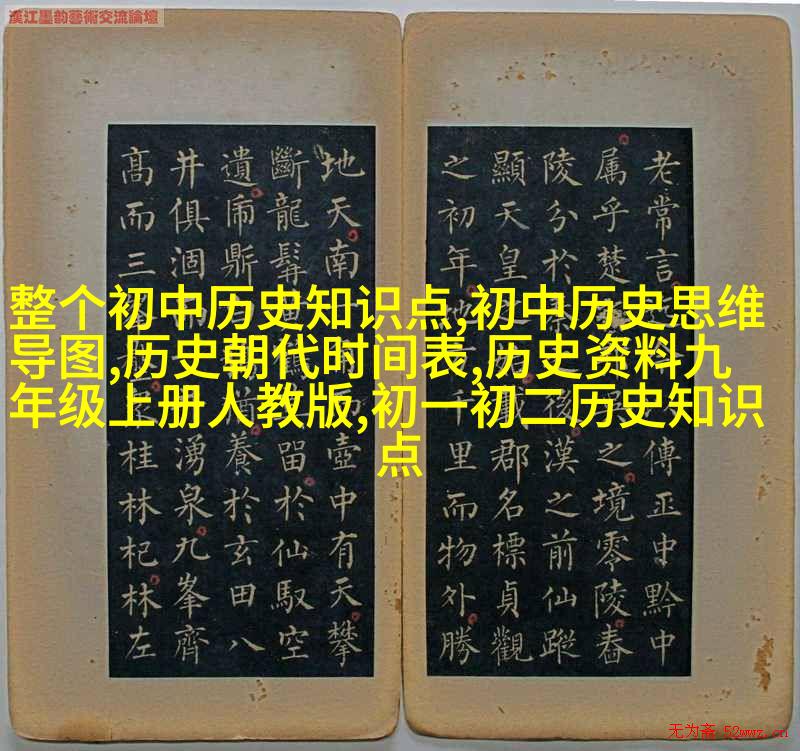 漢江墨韵藝術交流論壇
整个初中历史知识点,初中历史思维
导图,历史朝代时间表,历史资料九
年级上册人教版,初一初二历史知识
点
老常言傳中黔中
属乎楚之境零陵舂
陵分於後漢之前仙蹤
顯天皇郡名標貞觀
之初年千里而物外勝
地天南壺中有天攀
斷龍髯留於仙馭空
遺鼎養於玄田八
井俱涸湧泉九峯齊
髙而三桂林杞林左
无为斋 52wwz.cn